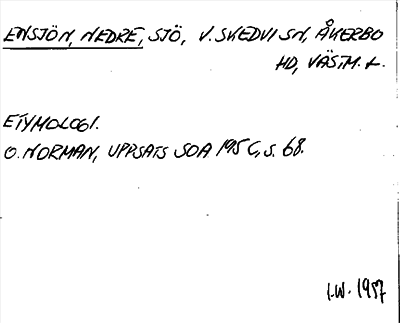 ENSJÖN, NEDRE, SJÖ, V. SKEDVI SN, ÅKERBO
HD, VÄSTM. L.
ETYMOLOGI.
O. NORMAN, UPPSATS SOA 195 C, S. 68.
I.W. 1957